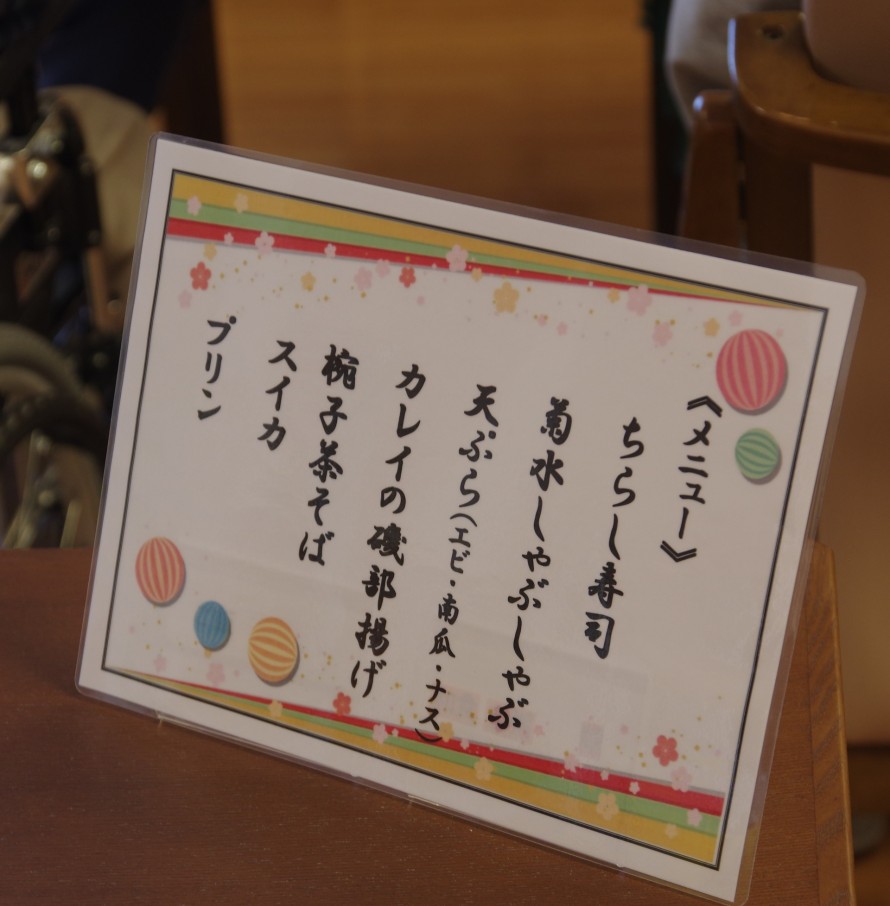 《メニュー》
ちらし寿司
菊水しゃぶしゃぶ
天ぷら(エビ・南瓜・ナス)
カレイの磯部揚げ
椀子茶そば
スイカ
プリン